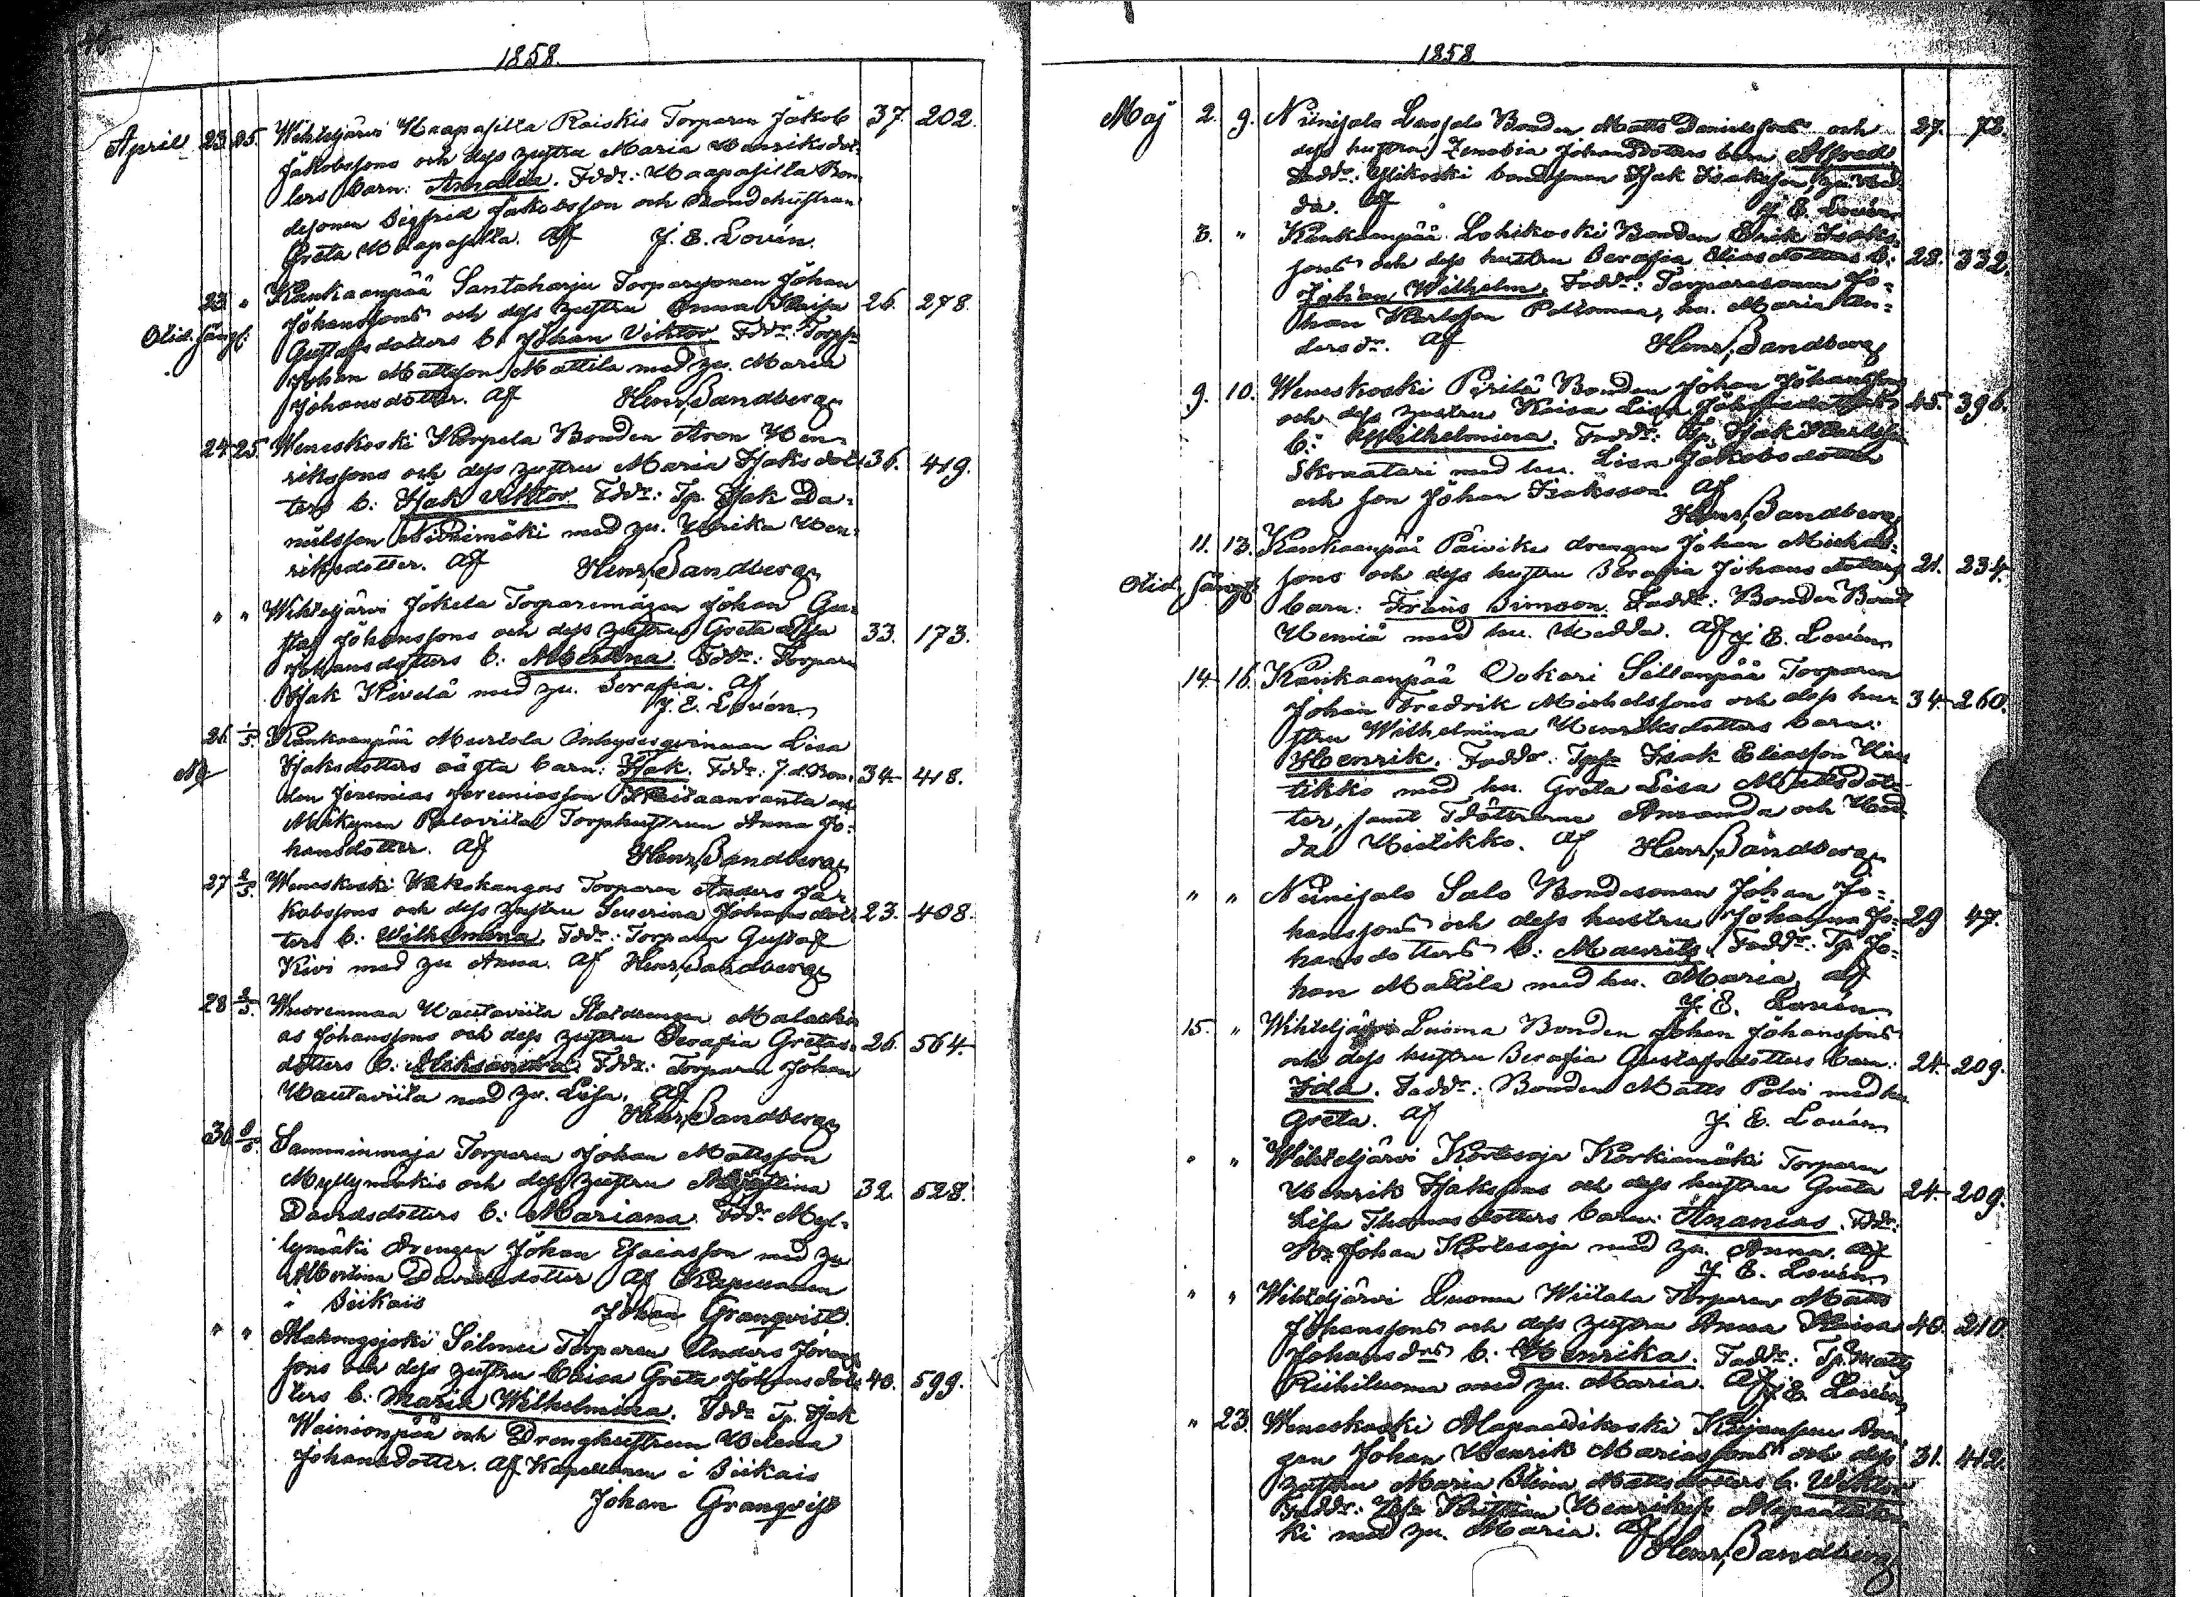 1858.
April 23. 25. Wihteljärvi Haapasilta Raiskis Torparen Jakob 37. 202.
Jakobssons och dess hustru Maria Henriksdot-
ters barn: Amalia. Fddr: Haapasilta Bon-
desonen Sigfred Jakobsson och Bondehustrun
Greta Haapasilta. Af J. E. Lovén.
23 " Kankaanpää Santaharju Torparsonen Johan
Johanssons och dess hustru Anna Kaisa 26. 278.
Olid. Sängf: Gustafsdotters b. Johan Viktor. Fddr: Torp
Johan Mattsson Mattila med hu. Maria
Johansdotter. Af Henr. Sandberg
24 25. Weneskoski Korpela Bonden Aron Hen-
rikssons och dess hustru Maria Isaksdot- 36. 419.
ters b: Isak Viktor. Fddr: Tp. Isak Da-
nielsson Niinimäki med hu. Ulrika Hen-
riksdotter. Af Henr. Sandberg
" " Wihteljärvi Jokela Torparemågen Johan Gus-
taf Johanssons och dess hustru Greta 33. 173.
Johansdotters b: Albertina. Fddr: Torparen
Isak Kivelä med hu. Serafia. Af
J. E. Lovén
26 1/5. Kankaanpää Muriola Inhysesqvinnan Lisa
Isaksdotters oägta barn: Isak. Fddr: J. d. Bon- 34 418.
den Jeremias Jeremiasson och
Palovirta Torphustrun Anna Jo-
hansdotter. Af Henr. Sandberg
27 2/5. Weneskoski Torparen Anders Ja-
kobssons och dess hustru Severina Johansdot- 23. 408.
ters b: Wilhelmina. Fddr: Torparen Gustaf
Kivi med hu Anna. Af Henr. Sandberg
28 2/5. Hautaviita Malachi
as Johanssons och dess hustru Serafia Gretas- 26. 564.
dotters b: Aleksandra. Fddr: Torparen Johan
Hautaviita med hu. Lisa. Af
Henr. Sandberg
30 Samminmaja Torparen Johan Mattsson
Myllymäkis och dess hustru 32. 528.
Davidsdotters b: Mariana. Fddr Myl-
lymäki drengen Johan Esaiasson med hu
Albertina Davidsdotter Af Kapellanen
i Siikais Johan Granqvist.
" " Torparen Anders
sons och dess hustru Caisa Greta Johansdot- 40. 599.
ters b: Maria Wilhelmina. Fddr Tp. Isak
Wainionpää och Drenghustrun Helena
Johansdotter. Af Kapellanen i Siikais
Johan Granqvist
1858
Maj 2. 9. Niinisalo Bonden Matts Danielssons och 27. 72.
dess hustru Zenobia Johansdotters barn Alfred
Faddr: bondsonen Isak Isaksson, hu Hed-
da. Af J. E. Lovén
3. " Kankaanpää Lohikoski Bonden Erik Isaks-
sons och dess hustru Serafia Eliasdotters b: 28. 332.
Johan Wilhelm. Faddr: Torparesonen Jo-
han Karlsson hu. Maria An-
dersdr. Af Henr. Sandberg
9. 10. Weneskoski Pirilä Bonden Johan Johanssons
och dess hustru Kaisa Lisa Johansdotters 45. 396.
b: Wilhelmiina. Faddr: Tp. Isak Karlsson
Skomatari med hu. Lisa Jakobsdotter
och son Johan Isaksson. Af
Henr. Sandberg
11. 13. Kankaanpää Päivike drengen Johan Michels-
Olid. Sängf. sons och dess hustru Serafia Johansdotters 21. 234.
barn: Frans Simson. Faddr: Bonden
Hemiä med hu. Hedda. Af J. E. Lovén
14 16. Kankaanpää Sillanpää Torparen
Johan Fredrik Michelssons och dess hu- 34 260.
stru Wilhelmina Henriksdotters barn:
Henrik. Faddr: Isak Eliasson Hie-
tikko med hu. Greta Lisa Mattsdot-
ter, samt döttrarna Amanda och Hed-
da Hietikko. Af Henr. Sandberg
" " Niinisalo Salo Bondesonen Johan Jo-
hanssons och dess hustru Johanna Jo- 29 47.
hansdotters b: Maurits. Faddr: Tp Jo-
han Mattila med hu. Maria. Af
J. E. Lovén
15. " Wihteljärvi Luoma Bonden Johan Johanssons
och dess hustru Serafia Gustafsdotters barn: 24 209.
Ida. Faddr: Bonden Matts Polvi med hu
Greta. Af J. E. Lovén
" " Wihteljärvi Kortesoja Korkiamäki Torparen
Henrik Isakssons och dess hustru Greta 24 209.
Lisa Thomasdotters barn: Ananias. Fddr:
Johan Kortesoja med hu. Anna. Af
J. E. Lovén
" " Wihteljärvi Luoma Wiitala Torparen Matts
Johanssons och dess hustru Anna Kaisa 40. 210.
Johansdrs b: Henrika. Faddr: Tp. Matts
Riihiluoma med hu. Maria. Af J. E. Lovén
" 23. Weneskoski Alapaattikoski dren-
gen Johan Henrik Mariassons och dess 31. 412.
hustru Maria Stina Mattsdotters b. Wiktor
Faddr: Kristian Alapaattikos-
ki med hu. Maria. Af
Henr. Sandberg